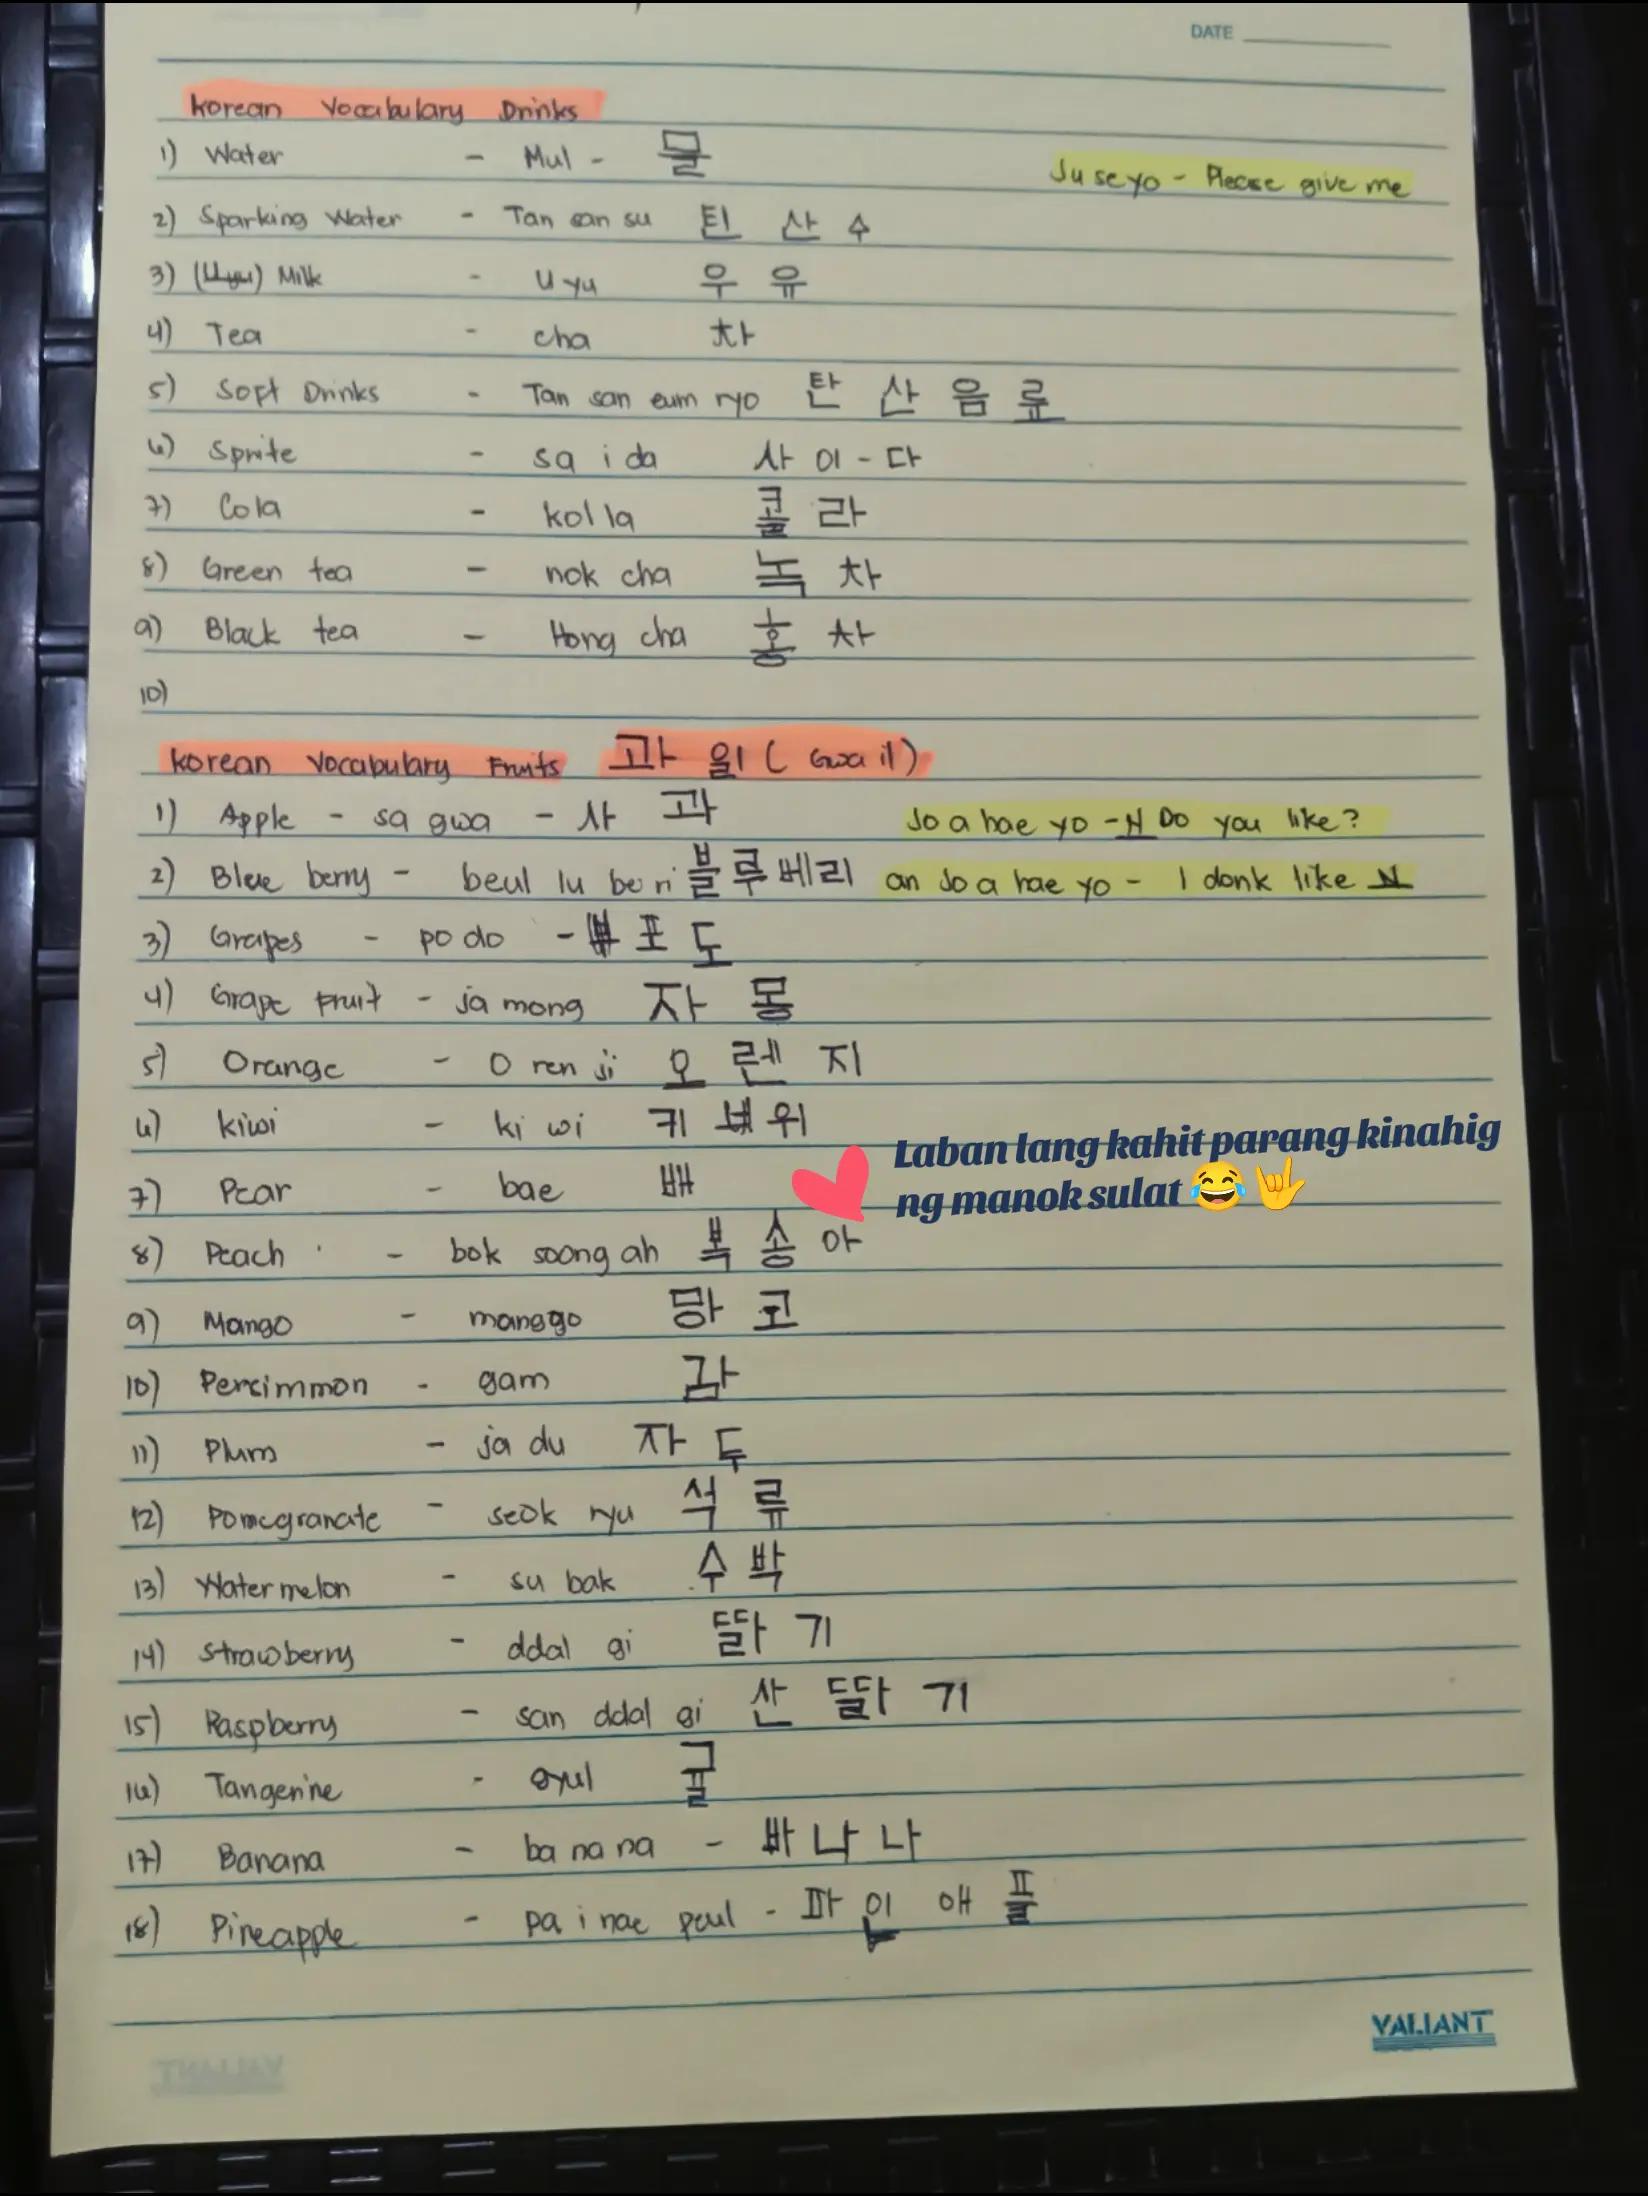 DATE
Korean Vocabulary Drinks
1) Water - Mul - 물
Ju se yo - Please give me
2) Sparking Water - Tan san su 탄 산 수
3) (Uyu) Milk - U yu 우 유
4) Tea - cha 차
5) Soft Drinks - Tan san eum ryo 탄 산 음 료
6) Sprite - sa i da 사 이 - 다
7) Cola - kol la 콜 라
8) Green tea - nok cha 녹 차
9) Black tea - Hong cha 홍 차
10)
Korean Vocabulary Fruits 과 일 ( Gwa il )
1) Apple - sa gwa - 사 과
Jo a hae yo - N Do you like?
2) Blue berry - beul lu be ri 블루베리
an Jo a hae yo - I donk like N
3) Grapes - po do - 포 도
4) Grape fruit - ja mong 자 몽
5) Orange - O ren ji 오 렌 지
6) kiwi - ki wi 키 위
7) Pear - bae 배
8) Peach - bok soong ah 복 숭 아
9) Mango - manggo 망 고
10) Persimmon - gam 감
11) Plum - ja du 자 두
12) Pomegranate - seok ryu 석 류
13) Water melon - su bak 수 박
14) Strawberry - ddal gi 딹 기
15) Raspberry - san ddal gi 산 딹 기
16) Tangerine - gyul 귤
17) Banana - ba na na - 바 나 나
18) Pineapple - pa i nae peul - 파 인 애 플
Laban lang kahit parang kinahig
ng manok sulat 😂🤟
VALIANT